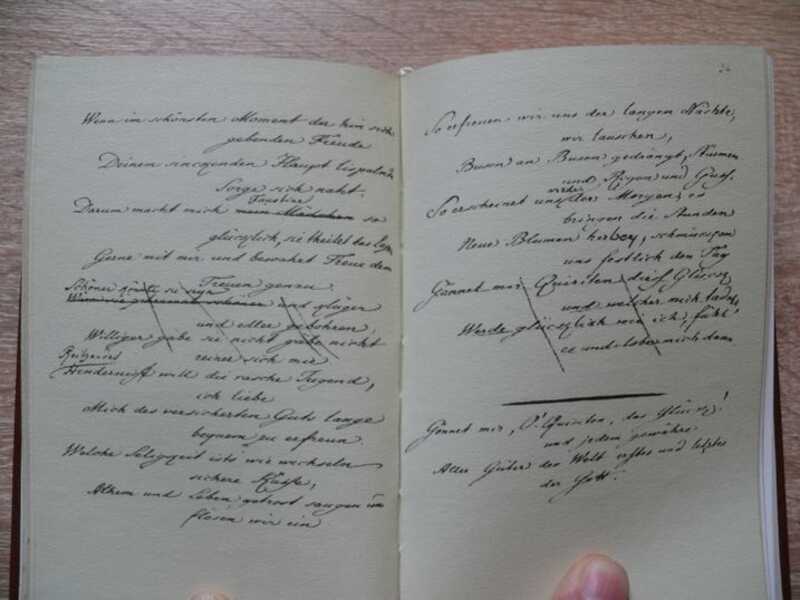 Wenn im schönsten Moment der hin sich
gebenden Freude
Deinem sincgenden Haupt lispelnd
Sorge sich naht.
Faustine
Darum macht mich mein Mädchen so
glücklich, sie theilet das Lager
Gerne mit mir und bewahrt Treue dem
Treuen genau.
Schöner
Wenn sie schöner und klüger
und edler gebohren,
Williger gäbe sie nicht gäbe nicht
reiner sich mir
Reitzendes
Hinderniss will die rasche Jugend,
ich liebe
Mich des versicherten Guts lange
bequem zu erfreun.
Welche Seligkeit ists wir wechseln
sichere Küsse,
Athem und Leben getrost saugen und
flösen wir ein
So erfreuen wir uns der langen Nächte,
wir lauschen,
Busen an Busen gedrängt, Stürmen
und Regen und Guss.
wieder
So erscheinet uns der Morgen, es
bringen die Stunden
Neue Blumen herbey, schmücken
uns festlich den Tag
Gönnet mir Quiriten dies Glück
und welcher mich tadelt
Werde glücklich wie ich, fühl'
es und lobe mich dann
Gönnet mir, O! Quiriten, das Glück!
und jedem gewähre
Aller Güter der Welt erstes und letztes
der Gott.